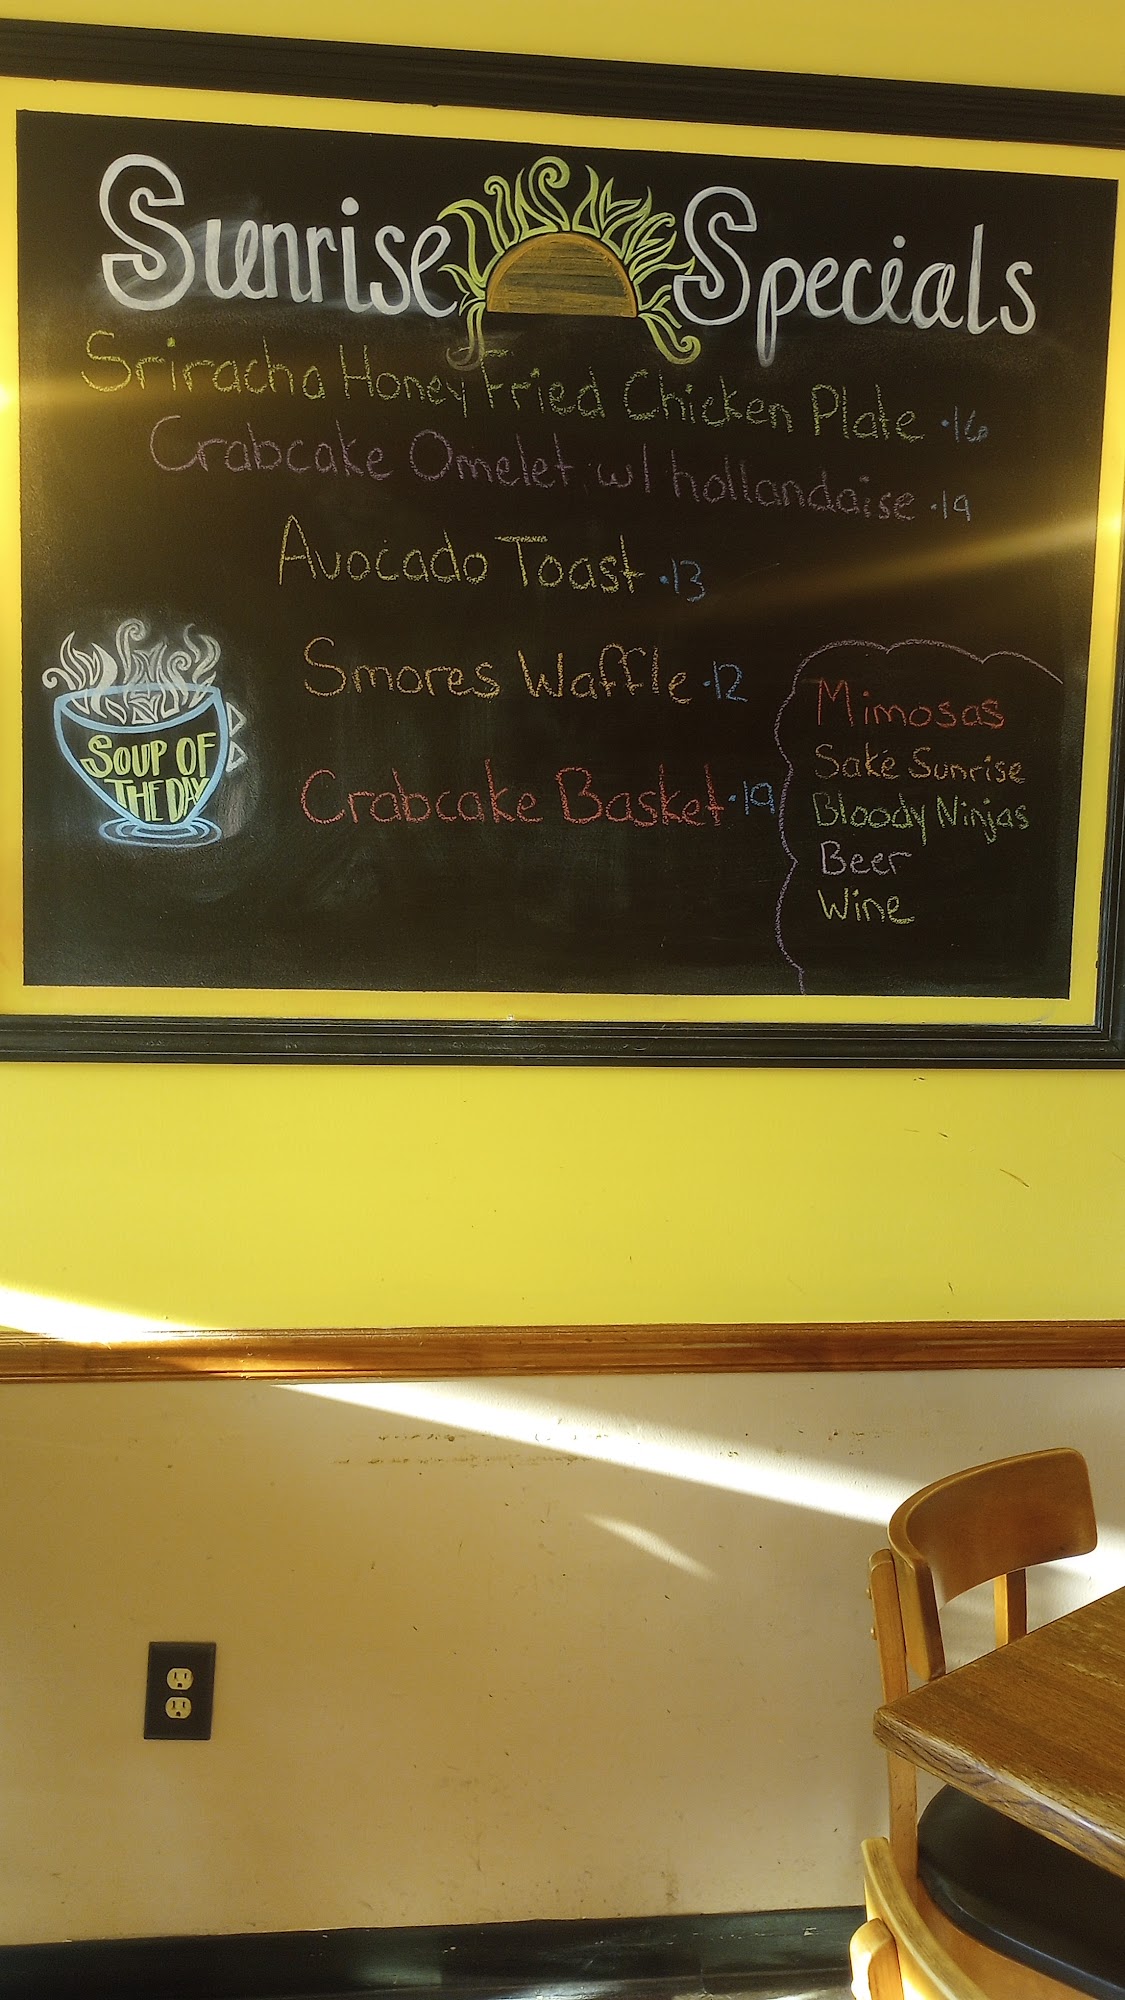 Sunrise Specials
Sriracha Honey Fried Chicken Plate ·16
Crabcake Omelet w/ hollandaise ·19
Avocado Toast ·13
Smores Waffle ·12
Crabcake Basket ·19
SOUP OF
THE DAY
Mimosas
Saké Sunrise
Bloody Ninjas
Beer
Wine